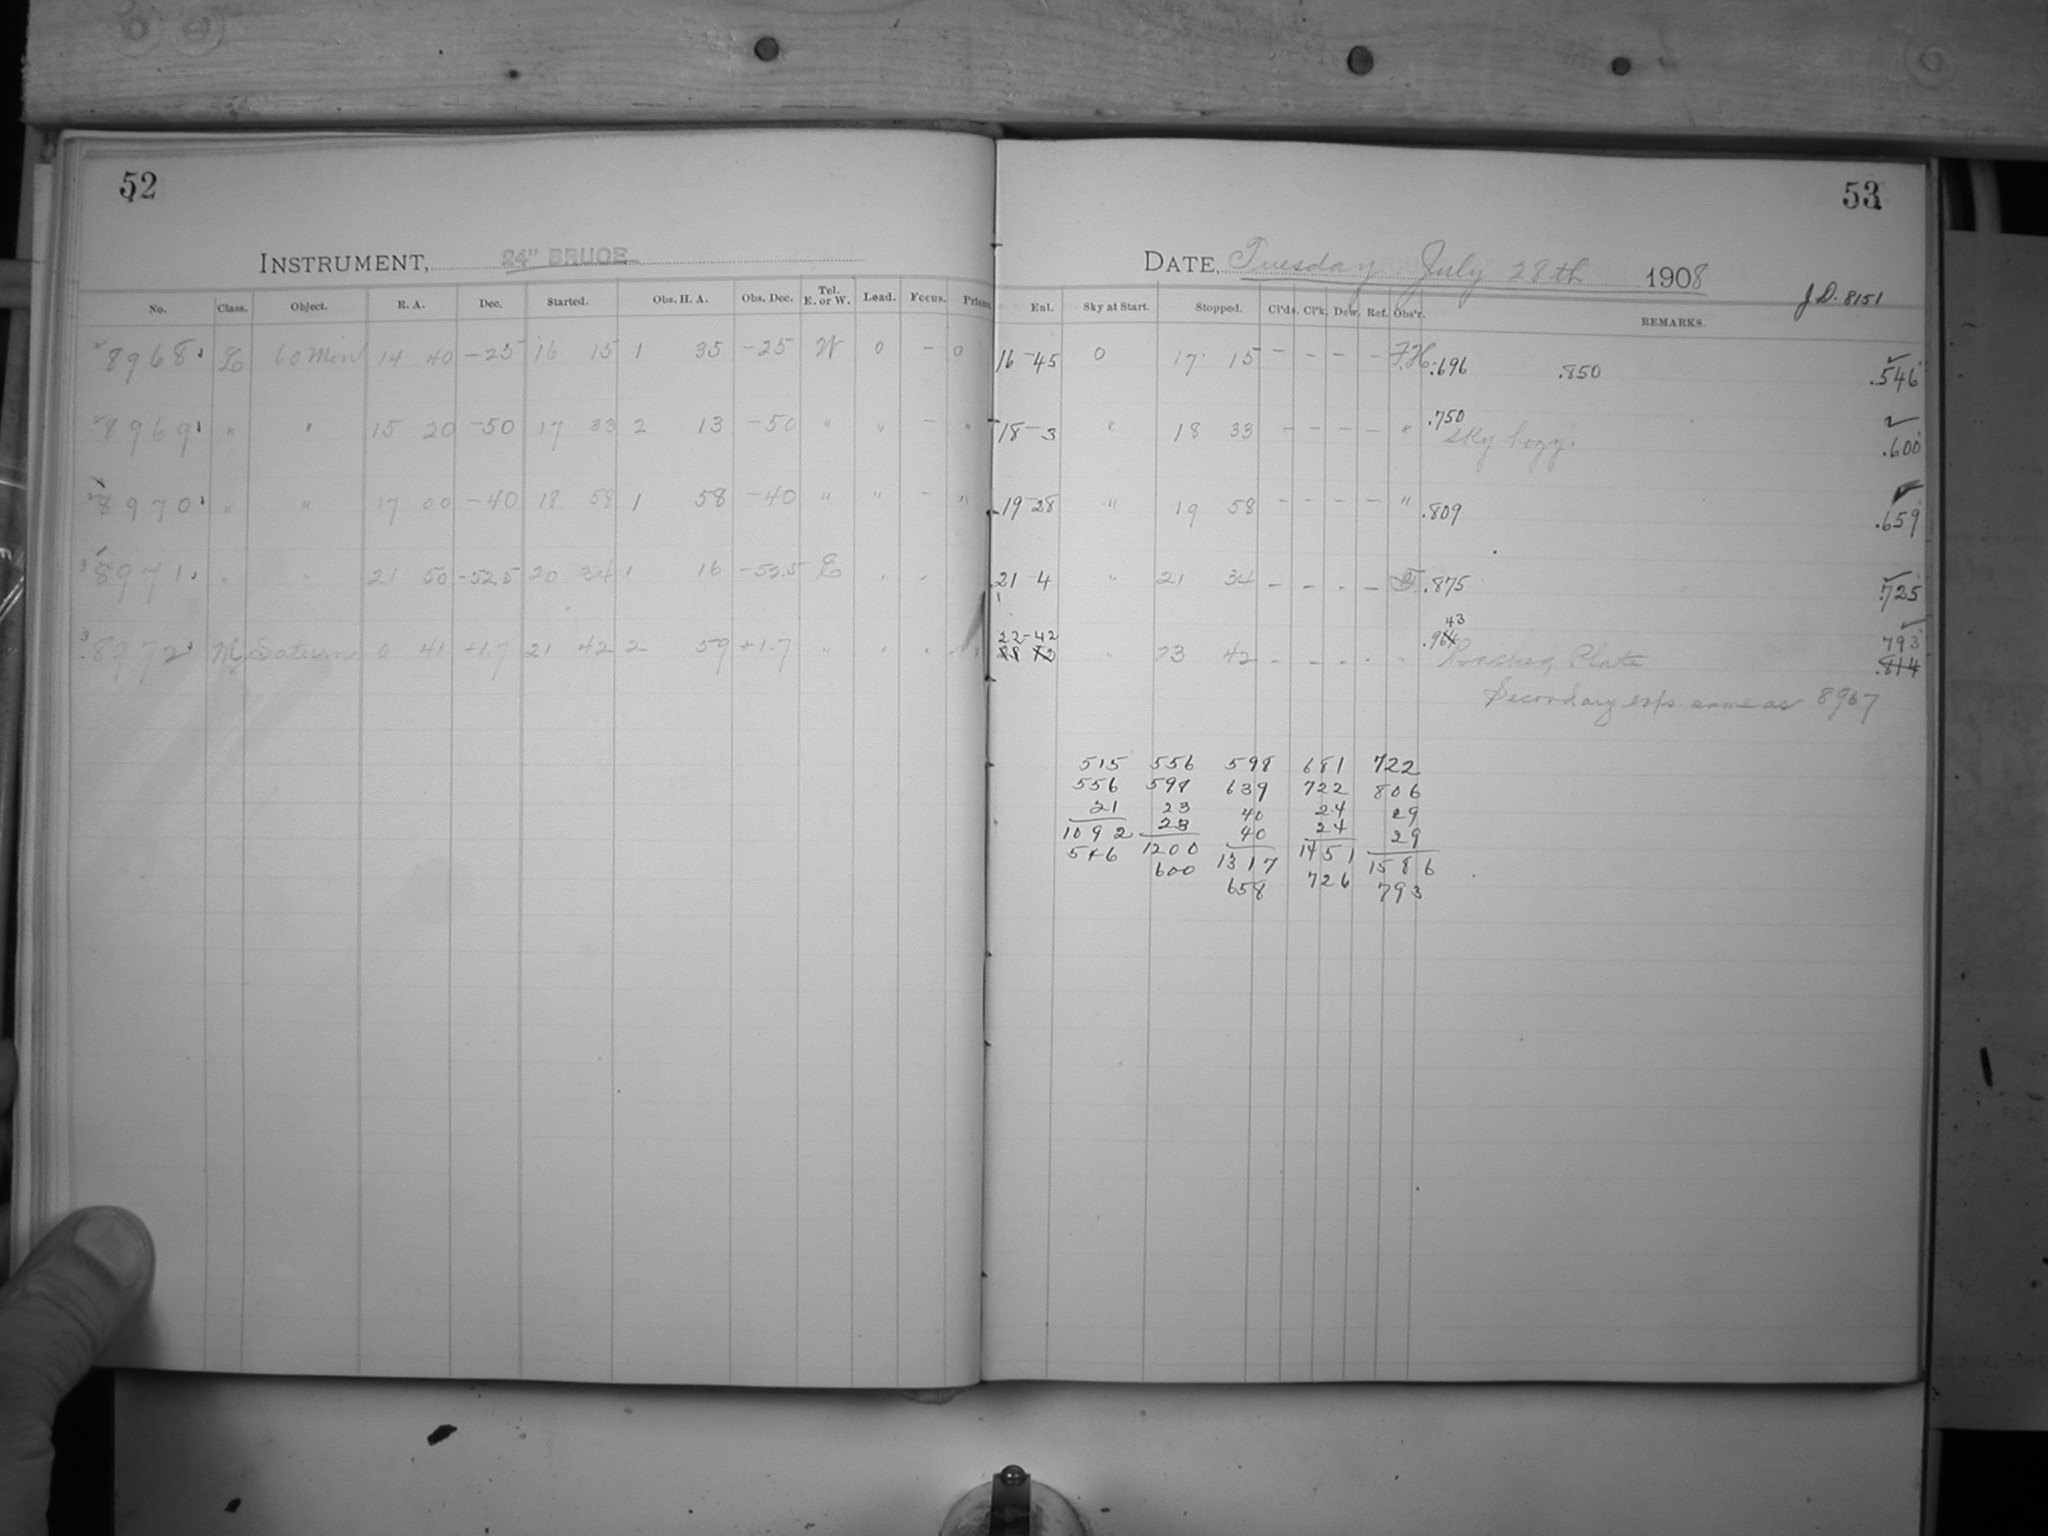 52
INSTRUMENT, 24" BRUCE
No. Class. Object. R. A. Dec. Started. Obs. H. A. Obs. Dec. Tel. E. or W. Load. Focus. Prisms
8968 L 60 Min 14 40 -25 16 15 1 35 -25 W 0 - 0
8969 " " 15 20 -50 17 33 2 13 -50 " " - "
8970 " " 17 00 -40 18 58 1 58 -40 " " - "
8971 " " 21 50 -52.5 20 34 1 16 -53.5 E
8972 M Saturn 0 41 +1.7 21 42 2 59 +1.7 " "
53
DATE, Tuesday July 28th 1908
J.D. 8151
Enl. Sky at Start. Stopped. Cl'ds. Cl'k. Dew. Ref. Obs'r. REMARKS.
16-45 0 17 15 - - - - F.H. .696 .850 .546
18-3 " 18 33 - - - - " .750 Sky hazy. .600
19-28 " 19 58 - - - - " .809 .659
21-4 " 21 34 - - - - F. .875 .725
22-42 " 23 42 - - - - " .964 43 Backed Plate 793 .814
Secondary exps. same as 8967
515 556 598 681 722
556 598 639 722 806
21 23 40 24 29
1092 23 40 24 29
546 1200 1317 1451 1586
600 658 726 793